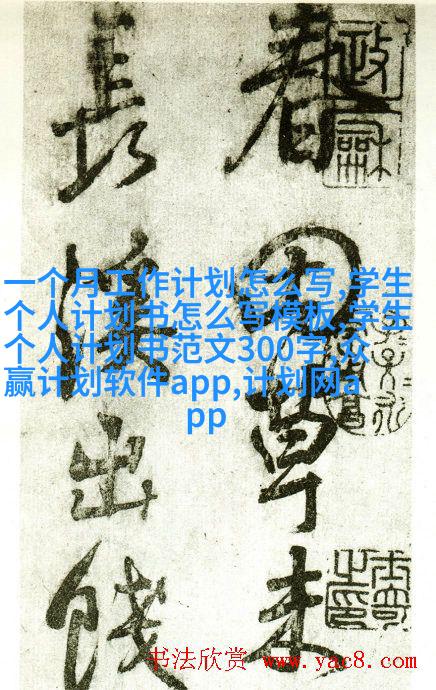 春田草未
長溪出餞
政龢
一个月工作计划怎么写,学生
个人计划书怎么写模板,学生
个人计划书范文300字,众
赢计划软件app,计划网a
pp
书法欣赏 www.yac8.com